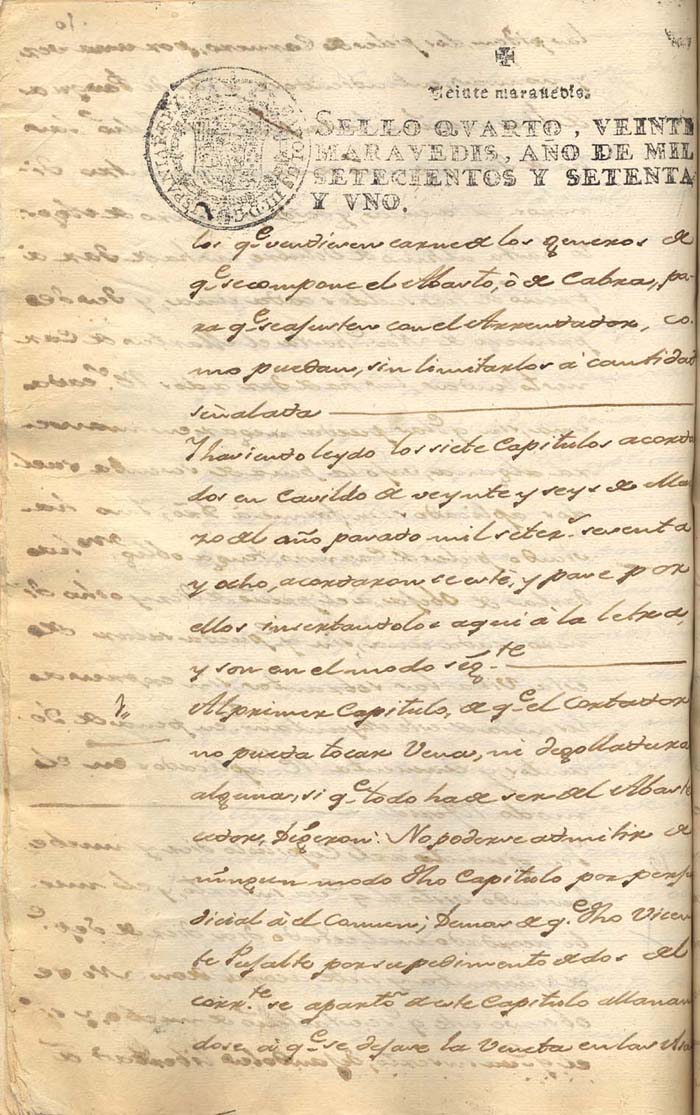 Veinte maravedis.
SELLO QVARTO, VEINTE
MARAVEDIS, AÑO DE MIL
SETECIENTOS Y SETENTA
Y VNO.
los qe. vendiesen carne de los generos de
qe. se compone el Abasto, ò de Cabra, pa-
ra qe. se ajusten con el Arrendador, co-
mo puedan, sin limitarlos à cantidad
señalada
Y haviendo leydo los siete Capitulos acorda-
dos en Cavildo de veynte y seys de Mar-
zo del año pasado mil setezs. sesenta
y ocho, acordaron se esté, y pase por
ellos insertandolos aqui à la letra,
y son en el modo sigte.
Al primer Capitulo, de qe. el Cortador
no pueda tocar Vena, ni degolladura
alguna, si qe. todo ha de ser del Abaste-
cedor, Dixeron: No poderse admitir de
ningun modo dho Capitulo por perju-
dicial à el Comun; demas de qe. dho Vicen-
te por su pedimento de dos del
corrte. se apartò de este Capitulo allanan-
dose à qe. se dejase la Veneta en las